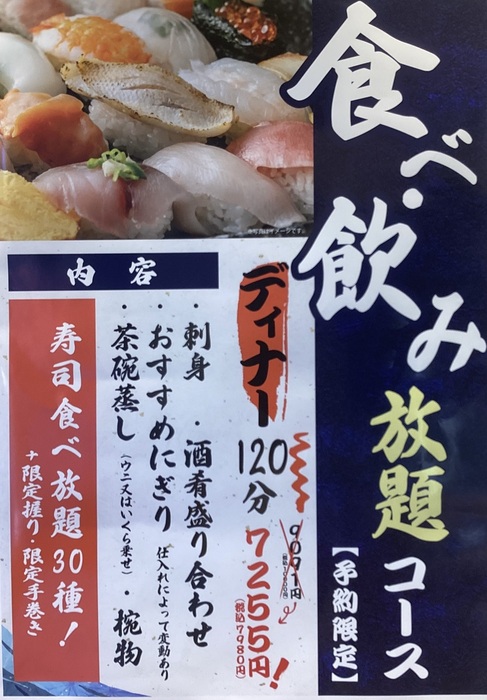 食べ・飲み
放題コース
【予約限定】
※写真はイメージです。
ディナー
120分
9091円
7255円!
(税込7980円)
内容
・刺身 ・酒肴盛り合わせ
・おすすめにぎり 仕入れによって変動あり
・茶碗蒸し (ウニ又はいくら乗せ) ・椀物
寿司食べ放題30種!
+限定握り・限定手巻き